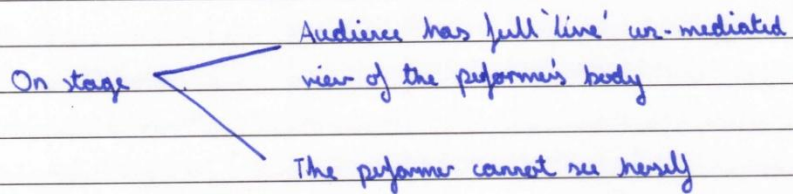 Audience has full 'live' un-mediated
On stage
view of the performer's body
The performer cannot see herself